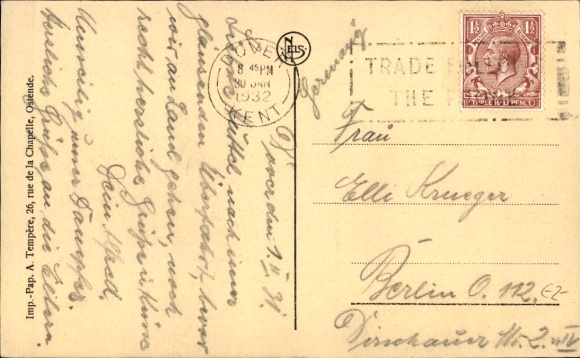 Imp.-Pap. A. Tempère, 26, rue de la Chapelle, Ostende.
NELS
DOVER
8 45 PM
30 JAN
1932
KENT
TRADE
THE
1½ 1½
THREE HALFPENCE
Germany
Dover den
Liebe nach einer
glänzenden Überfahrt, bevor
wir an Land gehen, noch
recht herzliche Grüße u. Küsse
Dein Alfred.
unser Dampfer.
Herzliche Grüße an die Eltern.
Frau
Elli Krueger
Berlin O. 112,
Dirschauer Str. 2